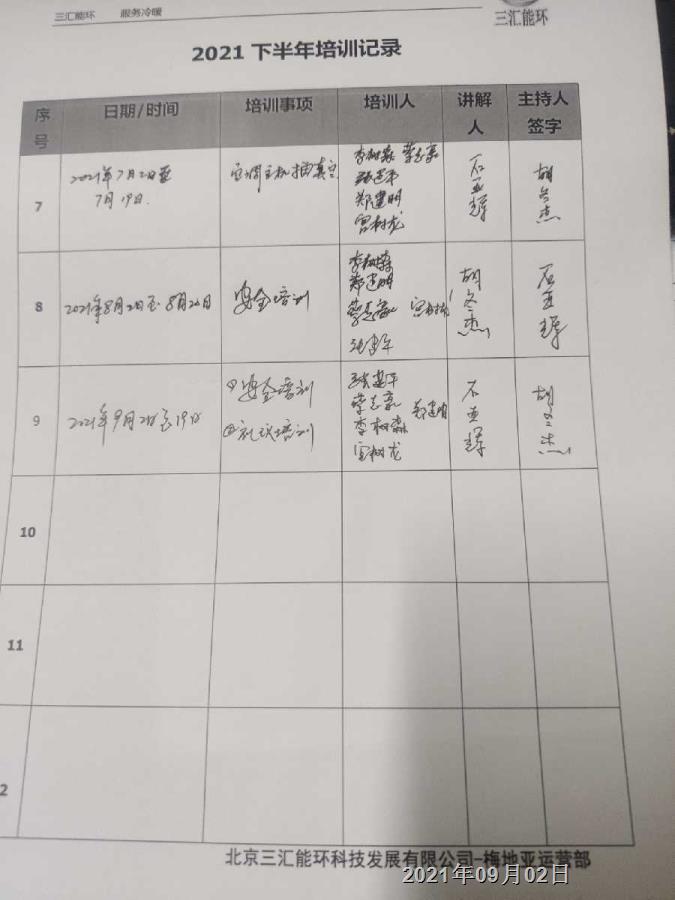 三汇能环 服务冷暖
三汇能环
2021 下半年培训记录
序号 日期/时间 培训事项 培训人 讲解人 主持人签字
7 2021年7月2日至 7月19日. 空调主机抽真空
李树森
郑建明
宫树龙
石亚辉
胡冬杰
8 2021年8月2日至8月26日 安全培训
李树森
郑建明
胡冬杰
石亚辉
9 2021年9月2日至19日
①安全培训
②礼仪培训
李树森 郑建明
宫树龙
石亚辉
胡冬杰
10
11
2
北京三汇能环科技发展有限公司-梅地亚运营部
2021年09月02日